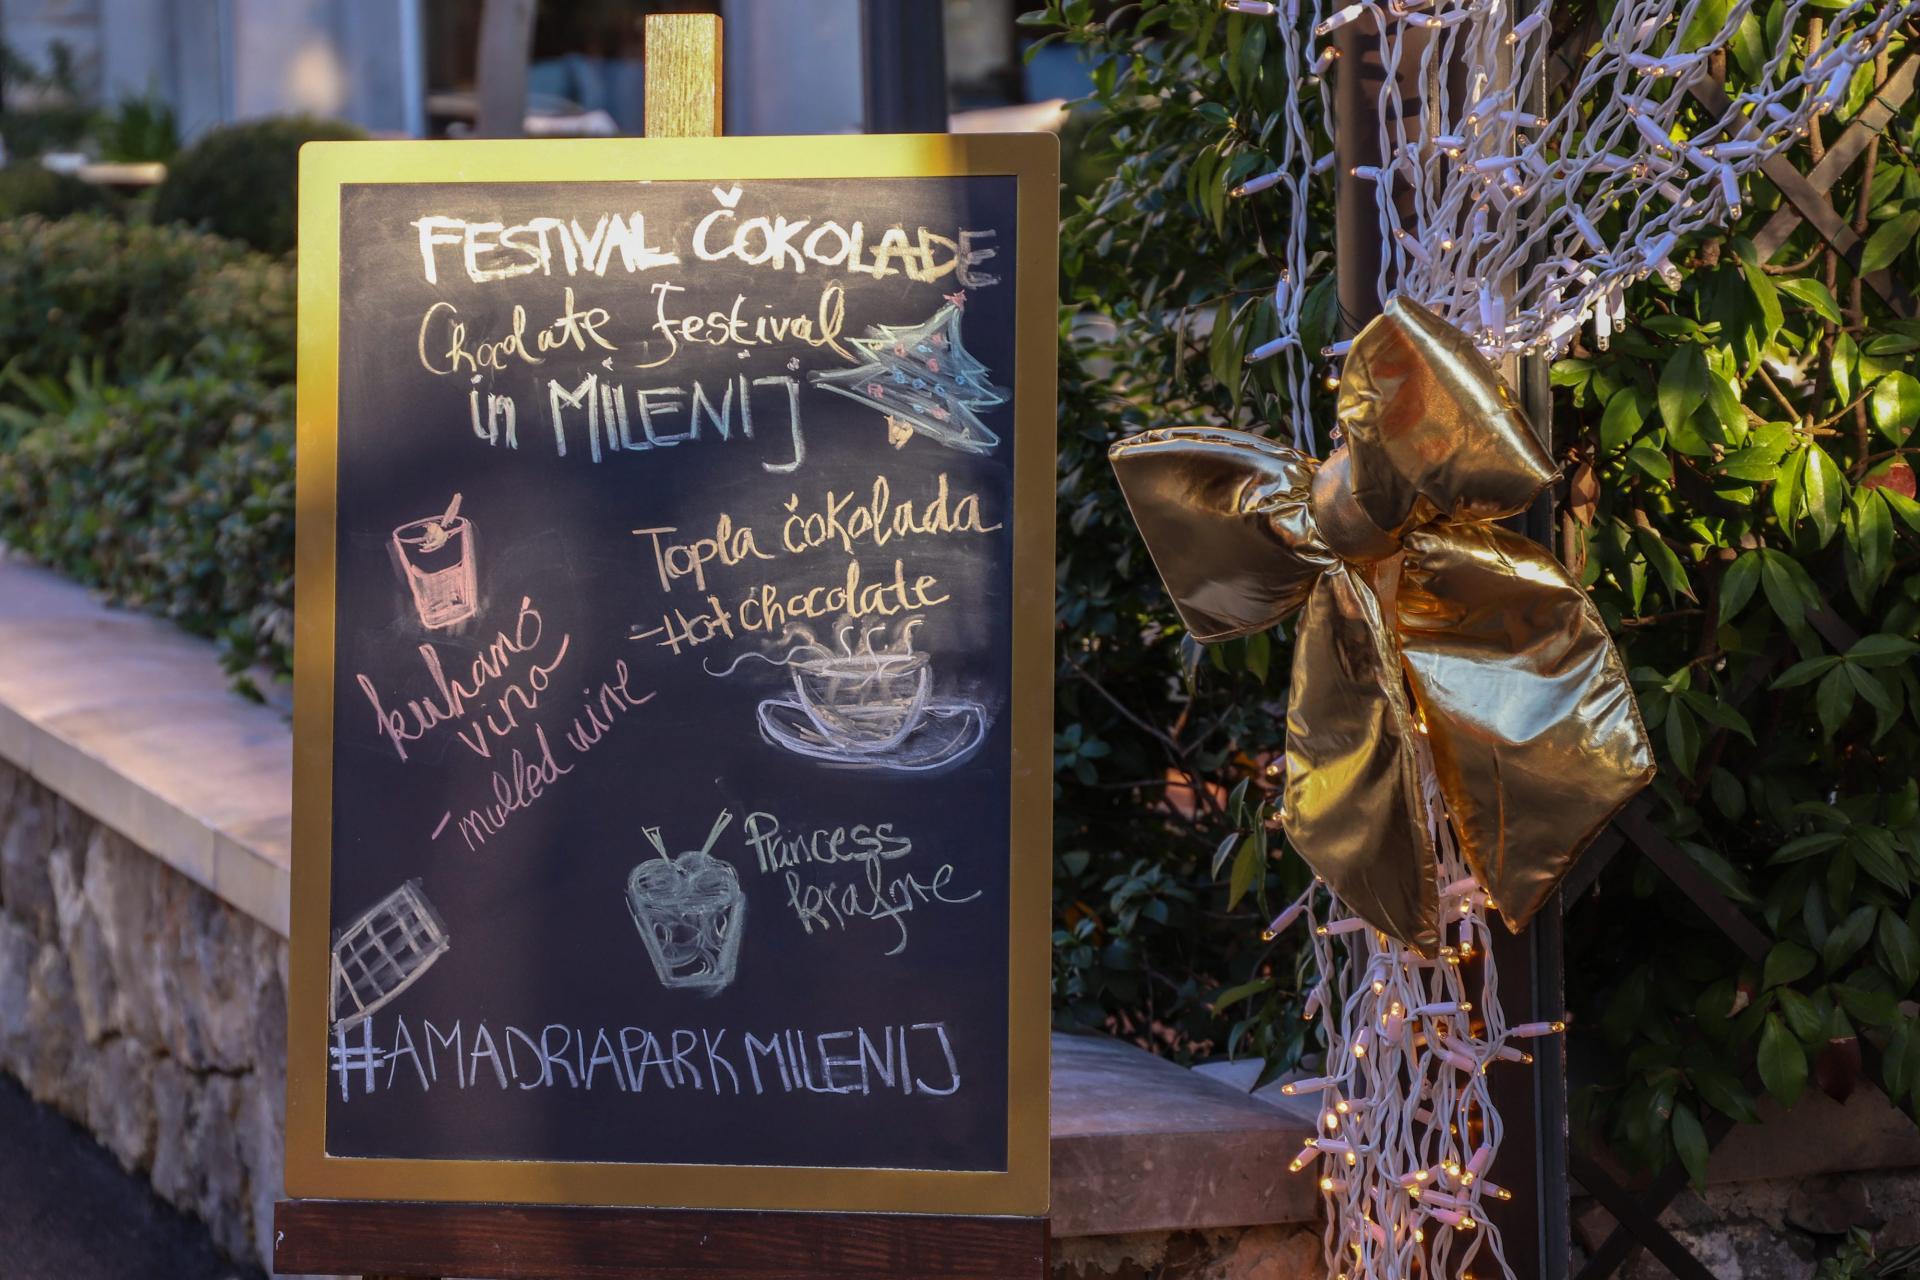 FESTIVAL ČOKOLADE
Chocolate Festival
in MILENIJ
Topla čokolada
-Hot chocolate
kuhano
vino
-mulled wine
Princess
krafne
#AMADRIAPARKMILENIJ